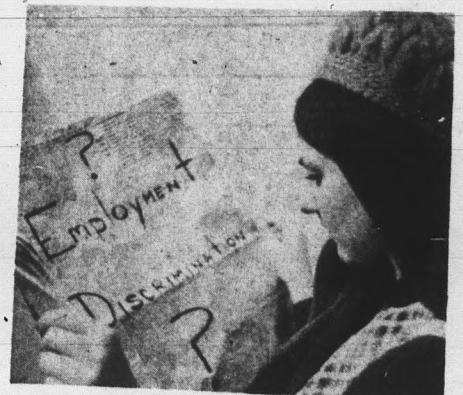 ?
EMPLOYMENT
DISCRIMINATION
?